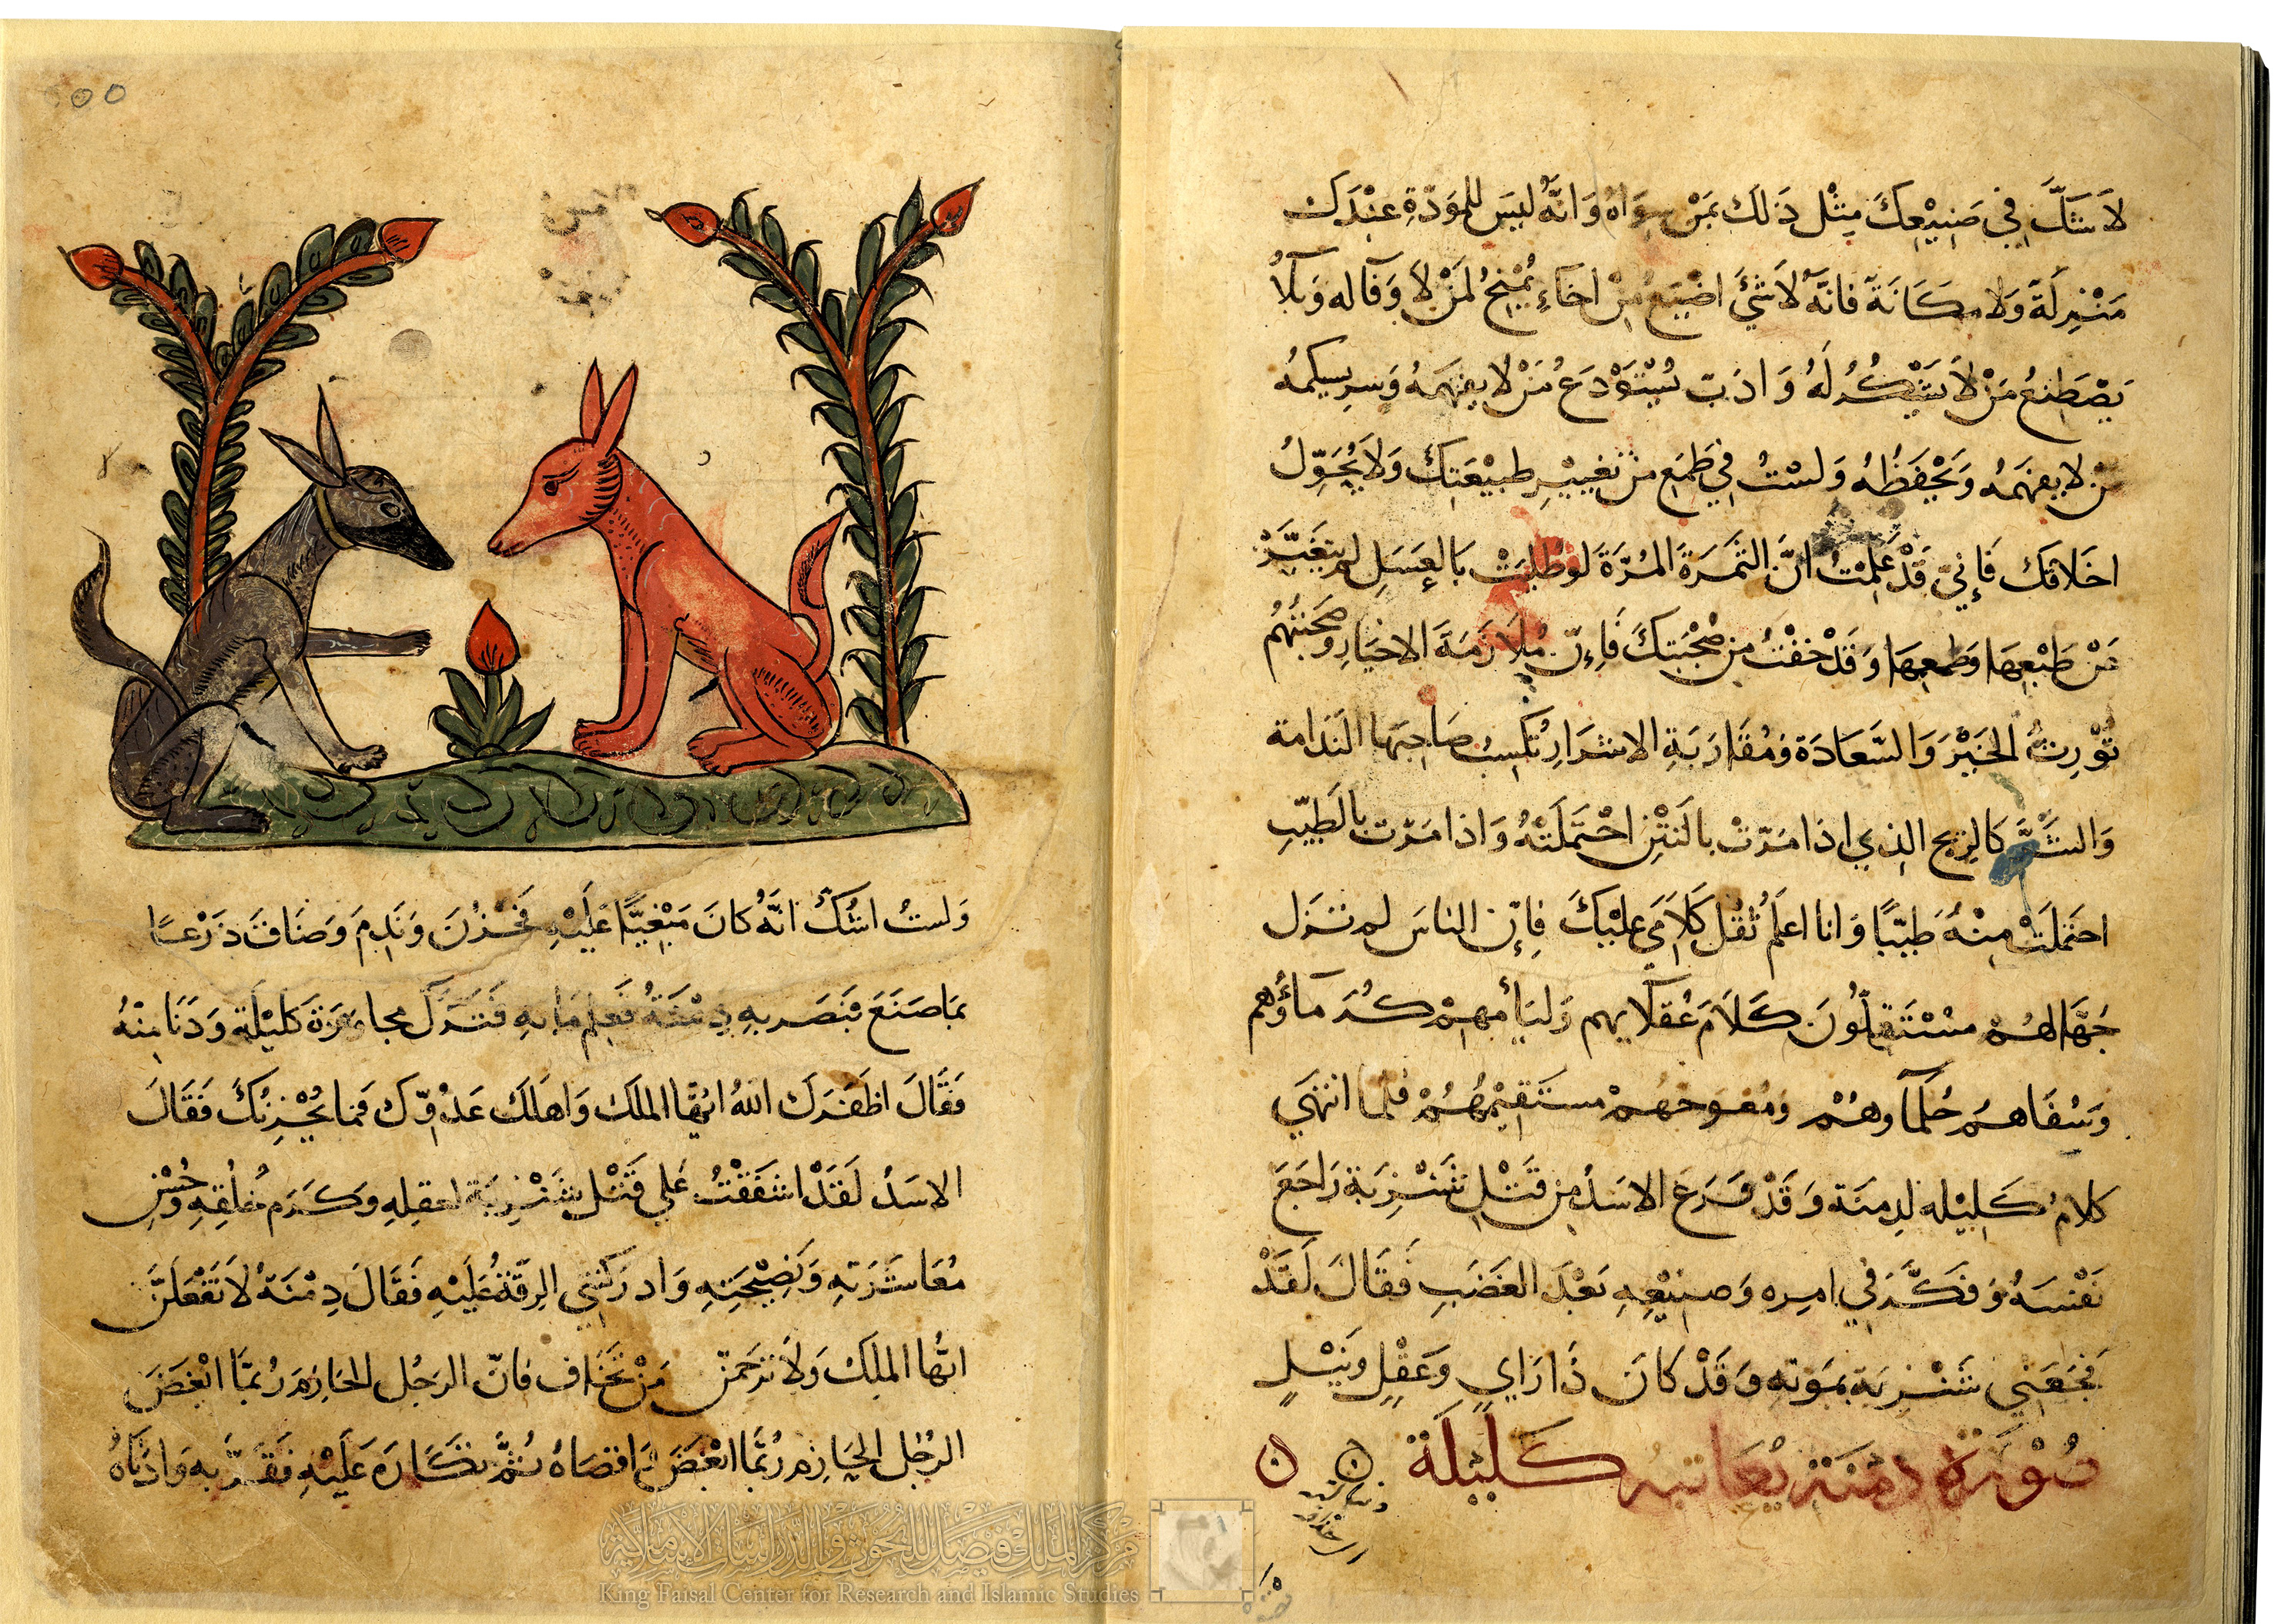 لاَ شَكَّ فِي صَنِيْعِكَ مِثْل ذَلَك بمَنْ سِوَاهُ وَانَّهُ ليَسَ للِمَوَدّةِ عِنْدَك
مَنْزِلَةً وَلا مكَانَةً فانَّهُ لاَشئَ اضْيَعُ مِنْ اخَاءٍ يُمْنِحُ لَمنْ لاَ وَفآله وَبَلآُ
يَصْطَنعُ مَنْ لاَ يَشْكُرُ لَهُ وَادَبَ يُسْتَوْدَعُ مَنْ لا يفهَمَهُ وَسِر
مَنْ لا يفهَمهُ وَيَحْفَظُهُ وَلسْتُ فِي طَمَعٍ منْ تَغِييْرِ طبيْعَتِكَ وَلاَ يُحَوِّلُ
اخَلاقكَ فَإنِيّ قَدْ عَلِمْتُ انَّ الثَمَرَةَ المُرَّةَ لَوطُلِيَتْ بَالعَسَلِ لم يَتغَيَّرْ
عَنْ طَبْعِهَا وَطَمعِهَا وَقدْ خفْتُ مِن صُحْبَتكَ فَاِنّ مُلاَزَمَةَ الاخيَارِ وصُحَبتَهُم
تُوْرِثُ الخَيْرَ وَالسَّعَادَة وَمُقَارَبَةِ الاشرَارِ تُكسِبُ صَاحِبَهَا النَدَامة
وَالشَّرَّ كالرِيح الذِي اذَا مَرّتْ بالنَتْنِ احْتَمَلَتْهُ وَاذا مَرّت بالَطيّبِ
احتَملَتْ مِنْهُ طيّبًا وَانا اعلَمُ ثُقل كَلاَمَي عليْكَ فإنّ الناسَ لم تزَل
جَهّالهُمْ مسْتَثقِلُونَ كَلاَمَ عُقلآيهم وَليَأمهمْ كُدَمَآؤُهم
وَسُفَاهُم حُلمآوهُمْ ومُعوجهُمْ مستَقِيْمهُمْ فلما انتهَي
كلامُ كَلِيْله لدِمنَة وَقَدْ فَرَغَ الاسَدُ مِن قتْلِ شَنْزِبَة رَاجَعَ
نَفْسَهُ وَفكَّرَ في امِره وَصنِيْعِهِ بَعْدَ الغَضَبِ فَقَالَ لَقَدْ
فَجَعَنِي شَنْزِبَة بمَوته وَقدْ كَانَ ذَا رَاي وَعَقْلِ ونَيْلٍ
صُوْرَة دِمْنَة يُعَاتبُه كَليْلَة
٥٥
وَلستُ اشُكّ انَّهُ كانَ مَبْغِيًّا عَليَهِ فحَزُنَ وَنَدِمَ وَضَاقَ ذَرْعًا
بمَا صَنَعَ فبَصَر بهِ دِمْنَةُ فَعلِم مَا بهِ فتَرَك مجاوَرَة كليْلَة وَدَنَا مِنْهُ
فَقَالَ اظَفَرَكَ اللهُ ايُّهَا الملَكُ وَاهَلَكَ عَدُوّكَ فمَا يُحْزِنُكَ فَقَالَ
الاسَدُ لَقَدْ اشفَقْتُ عَلي قَتْل شَنْزِبَة لعقِلِهِ وكَرَم خُلُقِهِ وَحُسْنِ
مُعَاشَرَتهِ وَنَصِيْحَتِهِ وَادرَكَتْني الرِقّةُ عَلَيْهِ فَقَالَ دِمْنَةُ لاَ تَفْعَلَنَّ
ايُّها الملِكُ وَلاَ تَرْحَمَنّ مَنْ تخَاف فانّ الرجُل الحَازِم رُبمَّا ابْغَضَ
الرجُل الحَازِم رُبمَّا ابْغَضَ وَاقصَاهُ ثُمَّ تكَارَهَ عَلَيْهِ فقَرَّبه وَادْنَاهُ
مركز الملك فيصل للبحوث والدراسات الإسلامية
King Faisal Center for Research and Islamic Studies